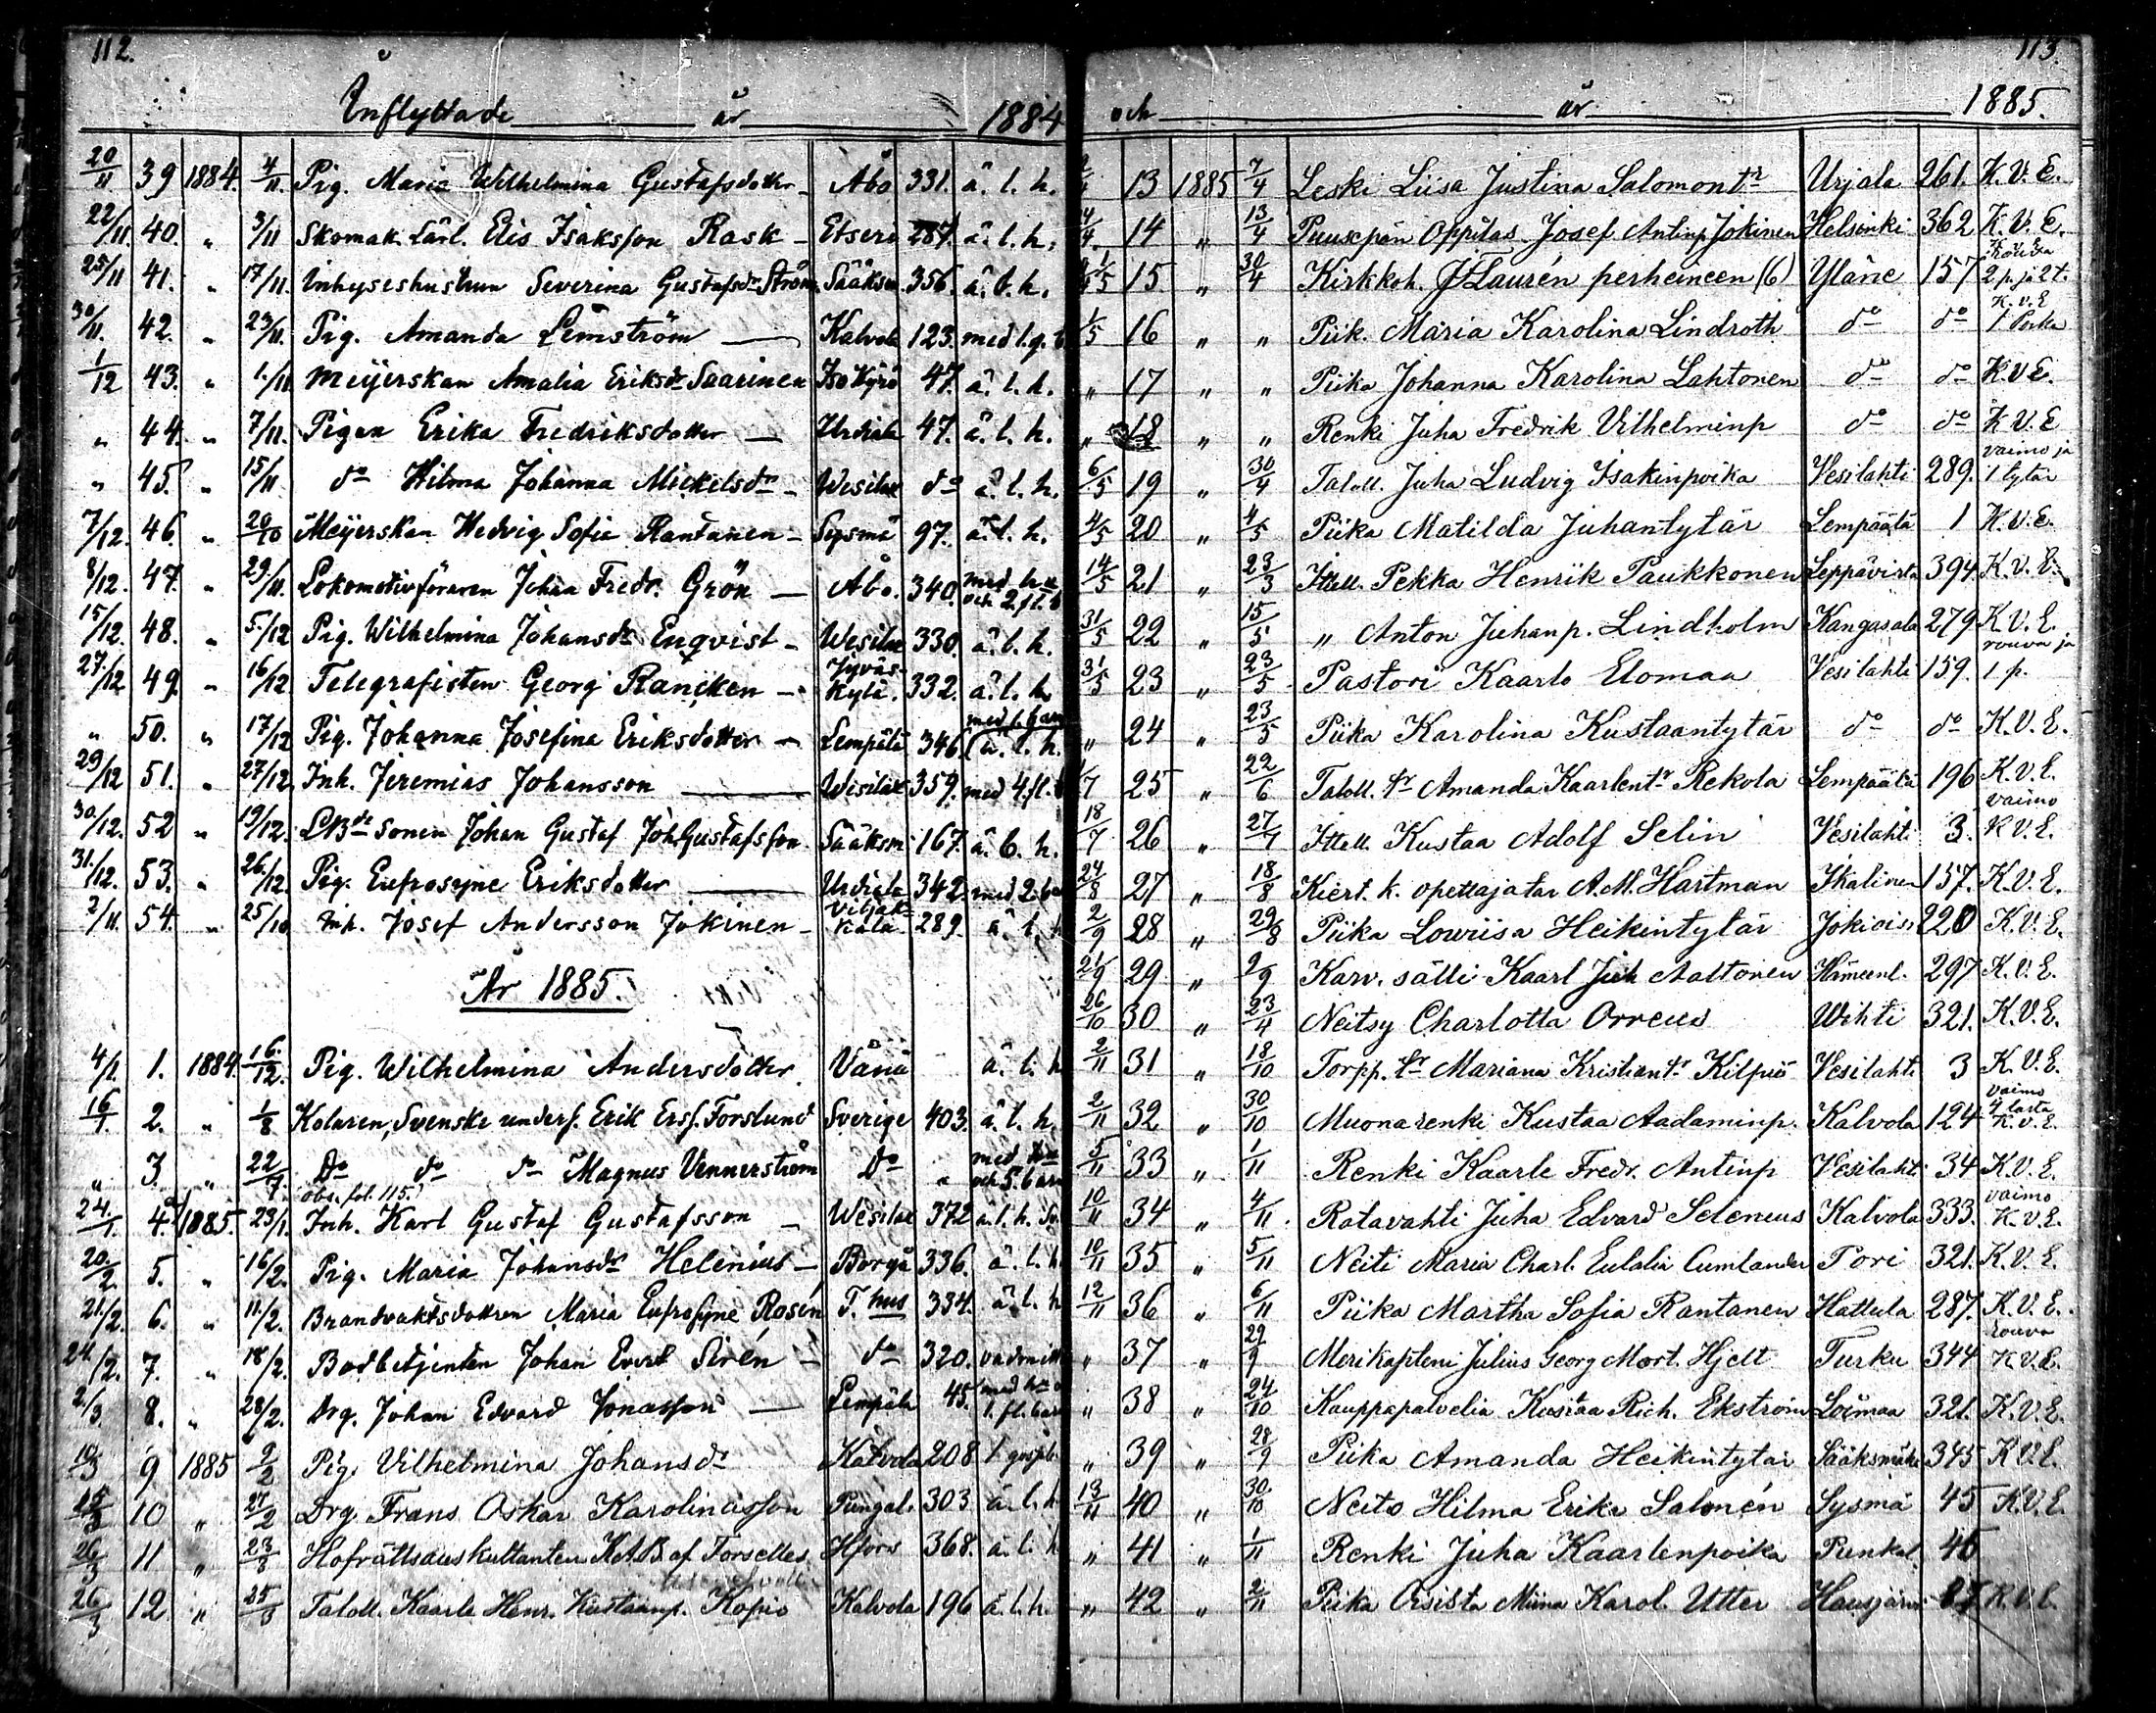 112.
Inflyttade år 1884
20/11 39 1884. 4/11. Pig. Maria Wilhelmina Gustafsdotter Åbo 331. ä. l. h.
22/11. 40. " 3/11 Skomak. Lärl. Elis Isaksson Rask Etseri 284. ä. l. h.
25/11 41. " 17/11. Inhyseshustrun Severina Gustafsdr Ström Sääksm. 356. ä. l. h.
30/11. 42. " 23/11. Pig. Amanda Lemström Kalvola 123. med l. g. b
1/12 43. " 1/11 Meijerskan Amalia Eriksdr Saarinen Iso Kyrö 47. ä. l. h.
" 44. " 7/11. Pigan Erika Fredriksdotter Urdiala 47. ä. l. h.
" 45. " 15/11 do Hilma Johanna Mickelsdr Wesilax do ä. l. h.
7/12. 46. " 20/10 Meijerskan Hedvig Sofia Rantanen Sysmä 97. ä. l. h.
8/12. 47. " 29/11. Lokomotivföraren Johan Fredr. Grön Åbo. 340. med hu och 2 fl. b
15/12. 48. " 5/12 Pig. Wilhelmina Johansdr Enqvist Wesilax 330. ä. l. h.
27/12 49. " 16/12 Telegrafisten Georg Rancken Jyväskylä. 332. ä. l. h.
" 50. " 17/12 Pig. Johanna Josefina Eriksdotter Lempälä 346 med 1. barn ä. l. h.
29/12 51. " 27/12 Inh. Jeremias Johansson Wesilax 359. med 4. fl. b
30/12. 52 " 19/12. LBde Sonen Johan Gustaf Joh. Gustafsson Sääksm 167. ä. l. h.
31/12. 53. " 26/12. Pig. Eufrosyne Eriksdotter Urdiala 342. med 2. ba
2/11. 54. " 25/10 Inh. Josef Andersson Jokinen Viljakkala 289. ä. l. h
År 1885.
4/1. 1. 1884. 16/12. Pig. Wilhelmina Andersdotter Vånå ä. l. h
16/1. 2. " 1/8 Kolaren, Svenske unders. Erik Ers. Forslund Sverige 403. ä. l. h.
" 3. " 22/7. Do do do Magnus Vennerström Do " med hu och 5. barn
obs. fol. 115.
24/1 4. 1885. 23/1. Inh. Karl Gustaf Gustafsson Wesilax 372 ä. l. h.
20/2. 5. " 16/2. Pig. Maria Johansdr Helenius Borgå 336. ä. l. h
21/2. 6. " 11/2. Brandvaktsdottren Maria Eufrosyne Rosén T. hus 334. ä. l. h
24/2. 7. " 18/2. Bodbetjenten Johan Evert Sirén do 320.
2/3. 8. " 28/2. Drg. Johan Edvard Jonasson Lempälä 45. med hu o 1. fl. barn
10/3 9 1885 9/2 Pig. Vilhelmina Johansdr Kalvola 208
25/3 10 " 27/2 Drg. Frans Oskar Karolinasson Pungal. 303 ä. l. h
26/3 11 " 23/3 Hofrättsauskultanten K.A.B. af Forselles Hfors 368. ä. l. h
26/3 12. " 25/3 Taloll. Kaarle Henr. Kustaanp. Kopio Kalvola 196 ä. l. h.
113.
och år 1885.
13 1885 7/4 Leski Liisa Justina Salomontr Urjala 261. K. V. E.
4/4. 14 " 13/4 Puusepän Oppilas Josef Antinp. Jokinen Helsinki 362 K. V. E.
15 " 30/4 Kirkkoh. Laurén perheineen (6) Yläne 157 rouva 2 p. ja 2 t.
1/5 16 " " Piik. Maria Karolina Lindroth do do K. V. E 1 Poika
" 17 " " Piika Johanna Karolina Lahtonen do do K. V. E.
" 18 " " Renki Juha Fredrik Vilhelminp do do K. V. E
6/5 19 " 30/4 Taloll. Juha Ludvig Isakinpoika Vesilahti 289. vaimo ja 1 tytär
4/5 20 " 4/5 Piika Matilda Juhantytär Lempäälä 1 K. V. E.
14/5 21 " 23/3 Itsell. Pekka Henrik Paukkonen Leppävirta 394. K. V. E.
31/5 22 " 15/5 " Anton Juhanp. Lindholm Kangasala 279. K. V. E.
31/5 23 " 23/5 Pastori Kaarlo Elomaa Vesilahti 159. rouva ja 1 p.
" 24 " 23/5 Piika Karolina Kustaantytär do do K. V. E.
1/7 25 " 22/6 Taloll. tr Amanda Kaarlentr Rekola Lempäälä 196 K. V. E.
18/7 26 " 27/7 Itsell. Kustaa Adolf Selin Vesilahti 3. vaimo K. V. E.
24/8 27 " 18/8 Kiert. k. opettajatar A. M. Hartman Ikalinen 157. K. V. E.
2/9 28 " 29/8 Piika Lowiisa Heikintytär Jokiois. 220 K. V. E.
21/9 29 " 9/9 Karv. sälli Kaarl Juh Aaltonen Hämeenl. 297 K. V. E.
26/10 30 " 23/4 Neitsy Charlotta Orreus Wihti 321. K. V. E.
2/11 31 " 18/10 Torpp. tr Mariana Kristiantr Kilpiö Vesilahti 3 K. V. E.
2/11 32 " 30/10 Muonarenki Kustaa Aadaminp. Kalvola 124 vaimo 4 lasta K. V. E.
5/11 33 " 1/11 Renki Kaarle Fredr. Antinp Vesilahti 34 K. V. E.
10/11 34 " 4/11. Ratavahti Juha Edvard Selenius Kalvola 333. vaimo K. V. E.
10/11 35 " 5/11 Neiti Maria Charl. Eulalia Cumlander Pori 321. K. V. E.
12/11 36 " 6/11 Piika Martha Sofia Rantanen Hattula 287. K. V. E.
" 37 " 29/9 Merikapteni Julius Georg Mort. Hjelt Turku 344 rouva K. V. E.
" 38 " 24/10 Kauppapalvelia Kustaa Rich. Ekström Loimaa 321. K. V. E.
" 39 " 28/9 Piika Amanda Heikintytär Sääksmäki 345 K. V. E.
13/11 40 " 30/10 Neito Hilma Erika Salonén Sysmä 45 K. V. E.
" 41 " 1/11 Renki Juha Kaarlenpoika Punkal. 46
" 42 " 2/11 Piika Orsista Miina Karol. Utter Hausjärvi 87 K. V. E.